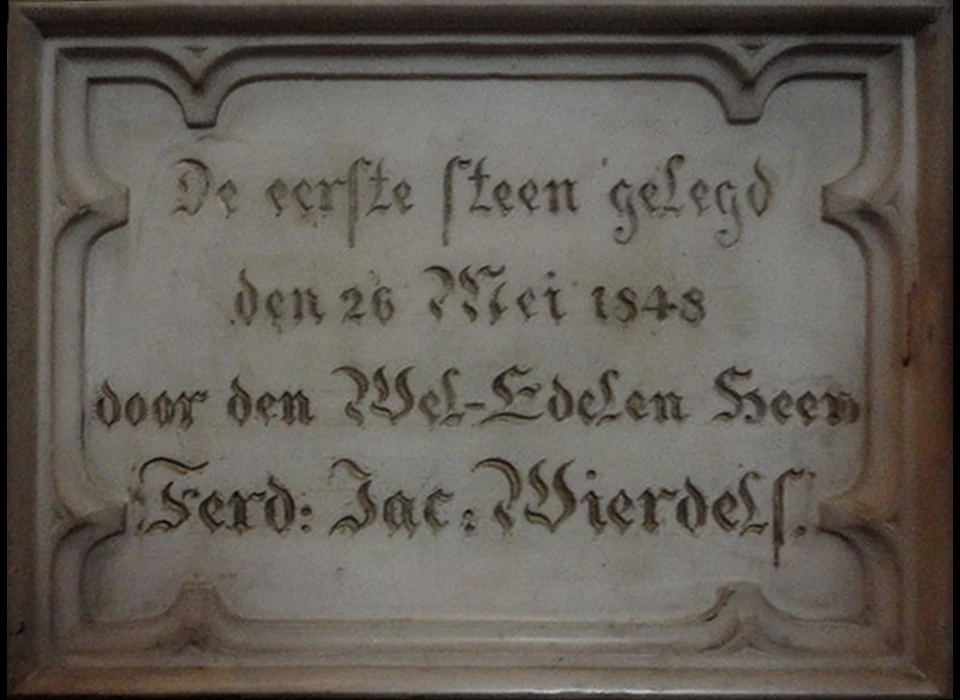 De eerste steen gelegd
den 26 Mei 1848
door den Wel-Edelen Heer
Ferd: Jac: Wierdels.